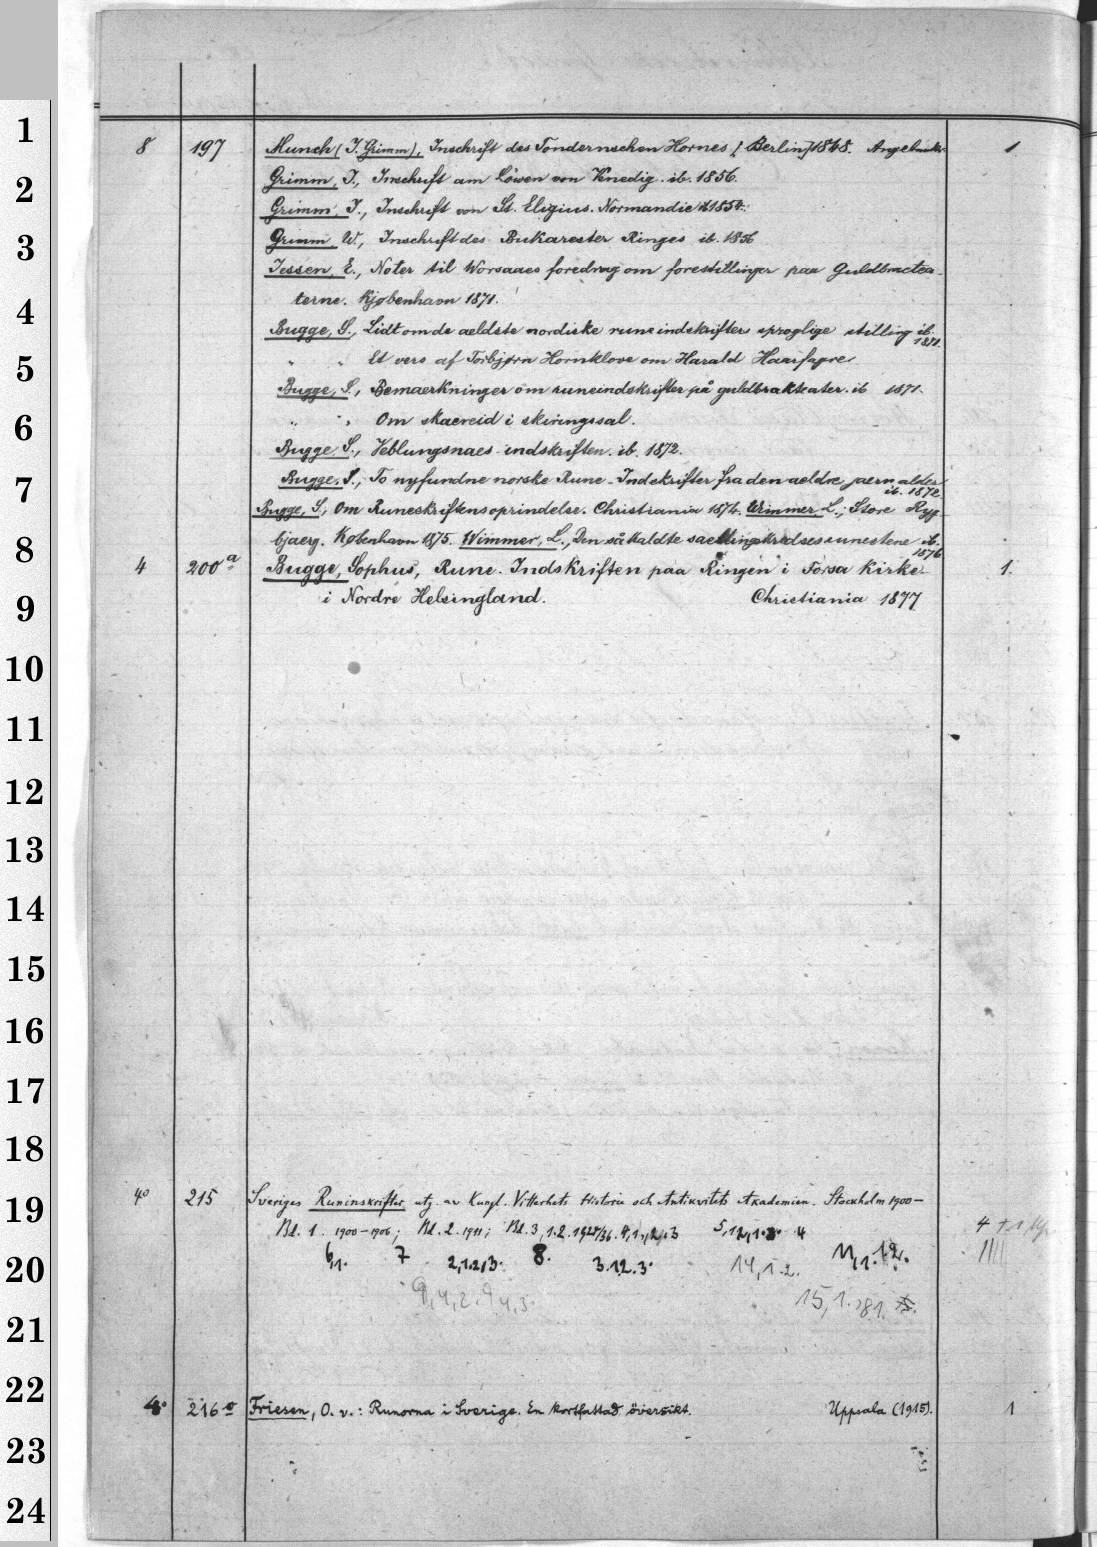 1
8 197 Munch (J. Grimm), Inschrift des Tondernschen Hornes [Berlin] 1848. 1
2
Grimm, J., Inschrift am Löwen von Venedig. ib. 1856.
Grimm, J., Inschrift von St. Eligius. Normandie 1854.
3
Grimm, W., Inschrift des Bukarester Ringes ib. 1856
Jessen, E., Noter til Worsaaes foredrag om forestillinger paa Guldbractea-
4
terne. Kjøbenhavn 1871.
Bugge, S., Lidt om de aeldste nordiske runeindskrifters sproglige stilling ib. 1871.
5
" " Et vers af Torbjørn Hornklove om Harald Haarfagre
Bugge, S., Bemaerkninger om runeindskrifter på guldbrakteater. ib 1871.
6
" " Om skaereid i skiringssal.
Bugge, S., Veblungsnaes-indskriften. ib. 1872.
7
Bugge, S., To nyfundne norske Rune-Indskrifter fra den aeldre jaernalder ib. 1872
Bugge, S., Om Runeskriftens oprindelse. Christiania 1874. Wimmer L., Store Ryg-
8
bjaerg. København 1875. Wimmer, L., Den såkaldte runestene ib. 1876
4 200a Bugge, Sophus, Rune-Indskriften paa Ringen i Forsa Kirke 1.
9
i Nordre Helsingland. Christiania 1877
10
11
12
13
14
15
16
17
18
4° 215 Sveriges Runinskrifter utg. av Kungl. Vitterhets Historie och Antikvitets Akademien. Stockholm 1900-
19
Bd. 1. 1900-1906; Bd. 2. 1911; Bd. 3, 1.2. 1924/36. 4,1.,2,.3 5,12,1.3. 4
20
6,1. 7 2,1.2,3. 8. 3.12.3. 14,1.2. 11,1.12.
9,4,2. 9 4,3. 15,1. 81.
21
22
4° 216a Friesen, O. v.: Runorna i Sverige. En kortfattad översikt. Uppsala (1915). 1
23
24